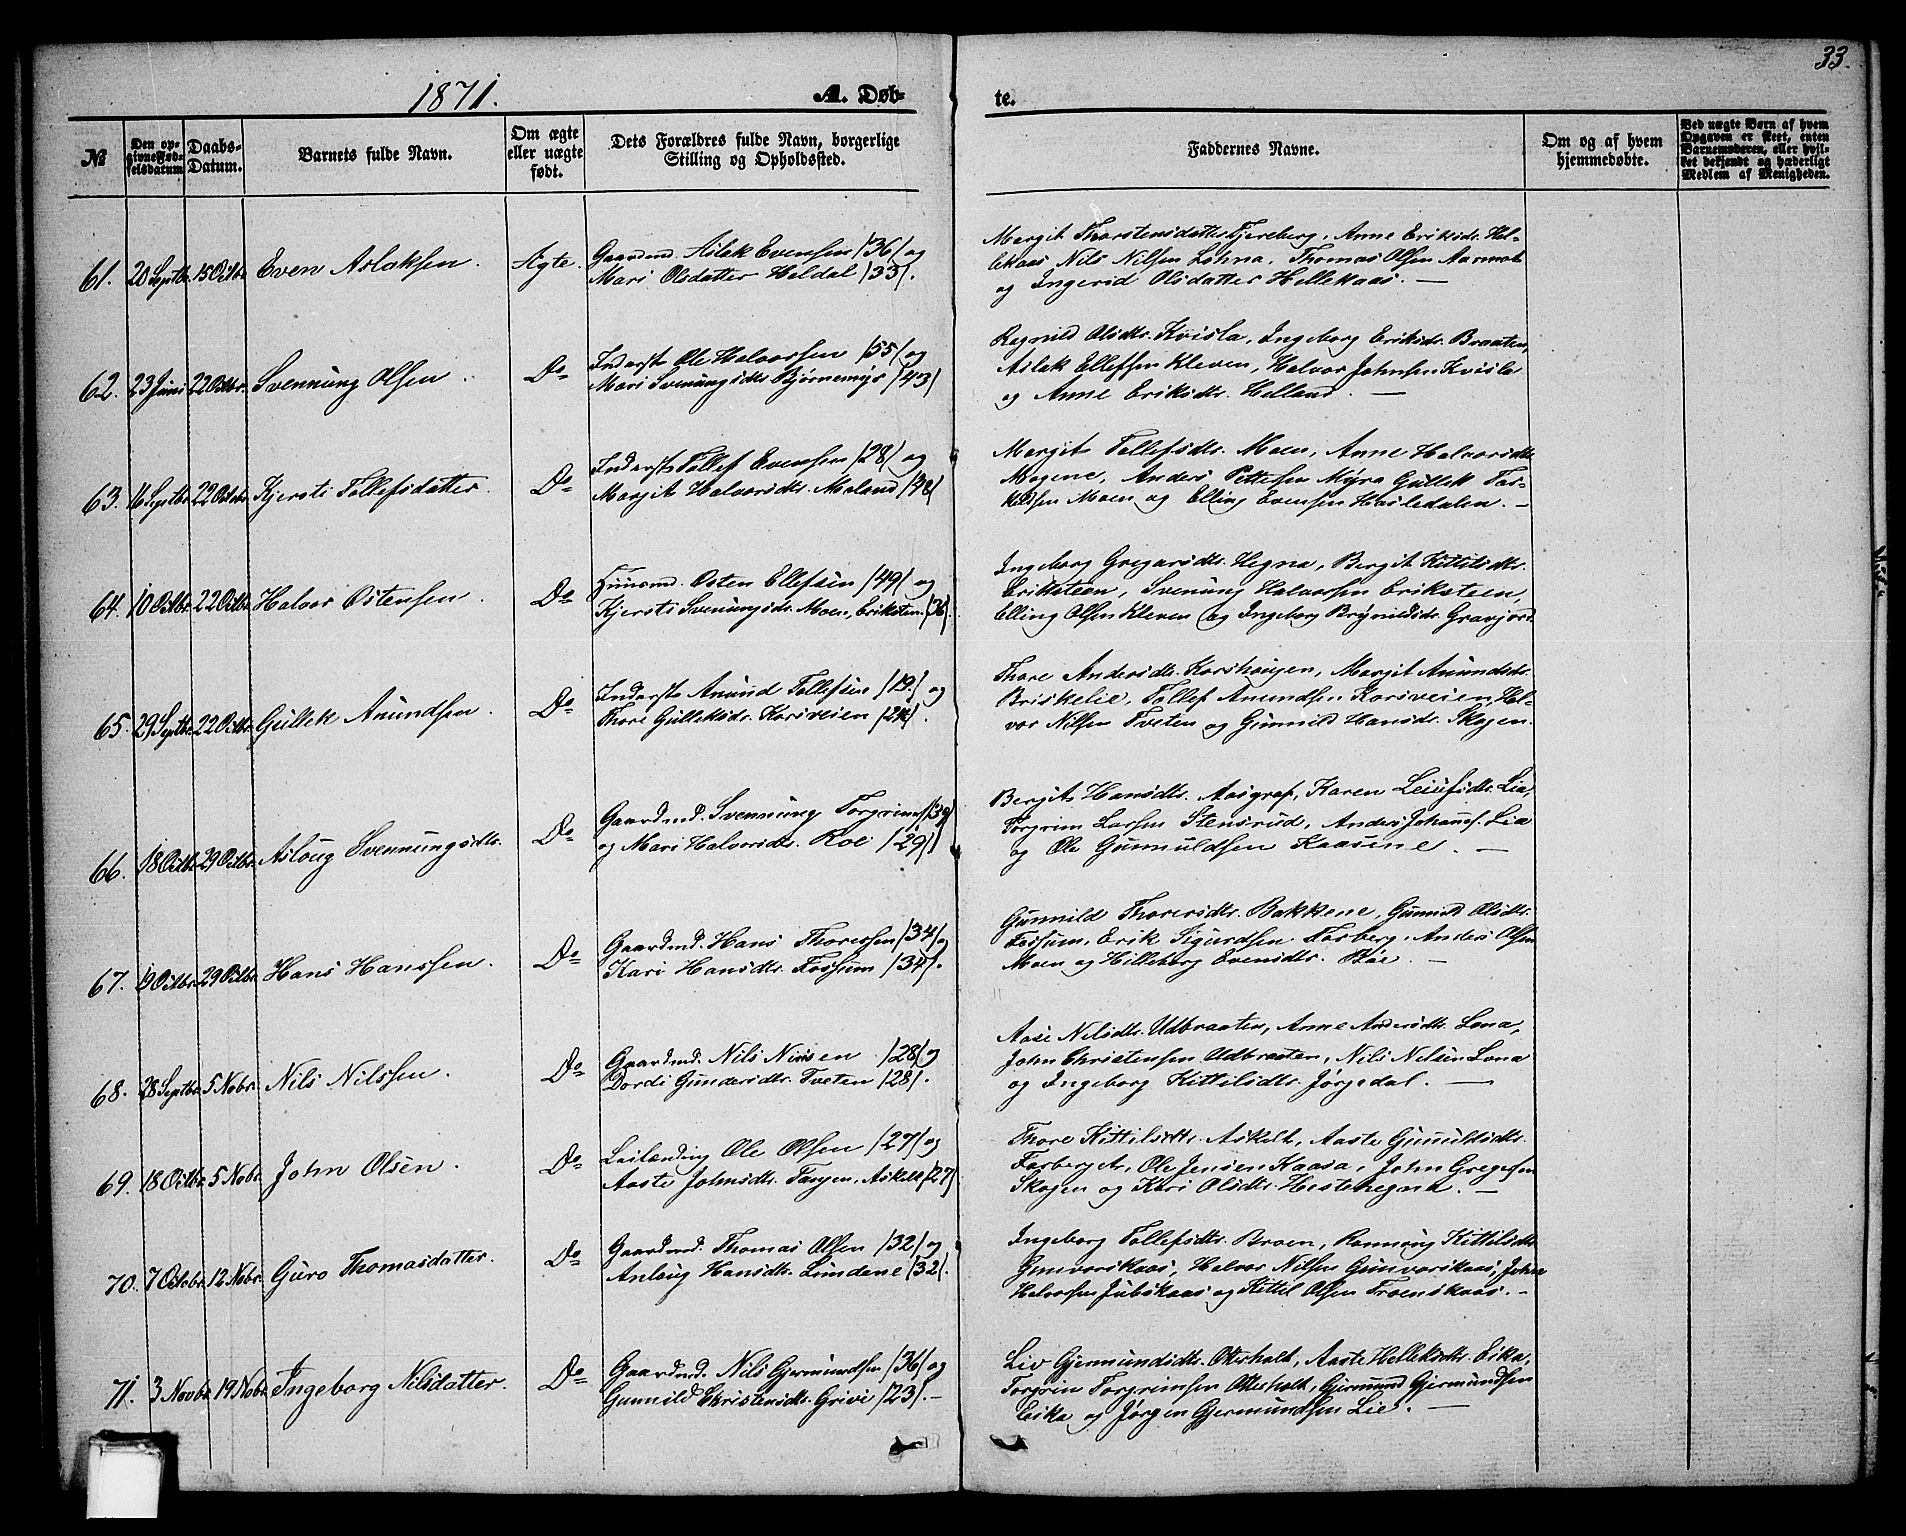 33.
1871. A. Døb- te.
№ Den opgivne Fødselsdatum Daabs-Datum. Barnets fulde Navn. Om ægte eller uægte født. Dets Forældres fulde Navn, borgerlige Stilling og Opholdssted. Faddernes Navne. Om og af hvem hjemmedøbte. Ved uægte Børn af hvem Opgaven er skeet, enten Barnemoderen, eller hvilket bekjendt og hæderligt Medlem af Menigheden.
61. 20 Septbr. 15 Octbr. Even Aslaksen. Ægte. Gaardmd. Aslak Evensen /36/ og
Mari Olsdatter Heldal /33/.
Margit Thorstensdatter Fjereberg, Anne Eriksdtr. Hel-
lekaas Nils Nilsen Lohna, Thomas Olsen Aarmot
og Ingerid Olsdatter Hellekaas. —
62. 23 Juni 22 Octbr. Svennung Olsen. Do Inderst Ole Halvorsen /55/ og
Mari Svenungsdtr. Bjørnemyr /43/
Regnild Olsdtr. Kvisla, Ingeborg Eriksdr. Braaten,
Aslak Ellefsen Kleven, Halvor Johnsen Kvisla
og Anne Eriksdtr. Helland. —
63. 16 Septbr. 22 Octbr. Kjersti Tollefsdatter. Do Inderst Tollef Evensen /28/ og
Margit Halvorsdtr. Moland
Margit Tollefsdtr. Moen, Anne Halvorsdtr.
Mogene, Anders Pettersen Myra Gullek Tar-
kelsen Moen og Elling Evensen Haaledalen. —
64. 10 Octbr. 22 Octbr. Halvor Ostensen. Do Huusmd. Osten Ellefsen /49/ og
Kjersti Svenungsdr. Moen, Eriksteen /36/.
Ingeborg Gregarsdtr. Hegna, Bergit Kittilsdtr.
Eriksteen, Svenung Halvorsen Eriksteen,
Elling Olsen Kleven og Ingeborg Brynildsdr. Gravjord.
65. 29 Septbr. 22 Octbr. Gullek Anundsen. Do Inderst Anund Tollefsen /19/ og
Thore Gulleksdr. Korsveien /24/.
Thore Andersdtr. Korshaugen, Margit Anundsdr.
Briskelie, Tollef Amundsen Korsveien, Hal-
vor Nilsen Tveten og Gunnild Hansdr. Skogen.
66. 18 Octbr. 29 Octbr. Asloug Svennungsdtr. Do Gaardmd. Svennung Torgrims. /39/
og Mari Halvorsdtr. Roe /29/
Bergit Hansdtr. Aasgraf, Karen Leiufsdtr. Lia,
Torgrim Larsen Stensrud, Anders Johannes. Lia
og Ole Gunnuldsen Kaasene. —
67. 9 Octbr. 29 Octbr. Hans Hanssen. Do Gaardmd. Hans Thoressen /34/ og
Kari Hansdtr. Fossum /34/.
Gunnild Thoresdtr. Bakkene, Gunnild Olsdtr.
Fossum, Erik Sigurdsen Forberg, Anders Olsen
Moen og Hilleborg Evensdtr. Bøe. —
68. 28 Septbr. 5 Nobr. Nils Nilssen. Do Gaardmd. Nils Nilsen /28/ og
Dordi Gundersdtr. Tveten /28/.
Aase Nilsdtr. Udbraaten, Anne Andersdtr. Lona,
John Christensen Udbraaten, Nils Nilsen Lona
og Ingeborg Kittilsdtr. Jørgedal. —
69. 18 Octbr. 5 Nobr. John Olsen. Do Leilænding Ole Olsen /27/ og
Aaste Johnsdtr. Tangen, Askelt /27/
Thore Kittilsdtr. Askelt, Aaste Gunuldsdtr.
Forberg, Ole Jensen Kaasa, John Gregersen
Skogen og Kari Olsdtr. Hestehegna. —
70. 7 Octobr. 12 Nobr. Guro Thomasdatter. Do Gaardmd. Thomas Olsen /32/ og
Anlaug Hansdtr. Lundene /32/.
Ingeborg Tollefsdtr. Broen, Rannung Kittilsdtr.
Gunvorskaas, Halvor Nilsen Gunvorskaas, John
Halvorsen Jubskaas og Kittil Olsen Froenskaas. —
71. 3 Novbr. 19 Nobr. Ingeborg Nilsdatter. Do Gaardmd. Nils Gjermundsen /36/ og
Gunnild Christensdtr. Grivi /23/. —
Liv Gjermundsdtr. Otterholt, Aaste Helleksdtr. Eika,
Torgrin Torgrimsen Otterholt, Gjermund Gjermundsen
Eika og Jørgen Gjermundsen Lie. —